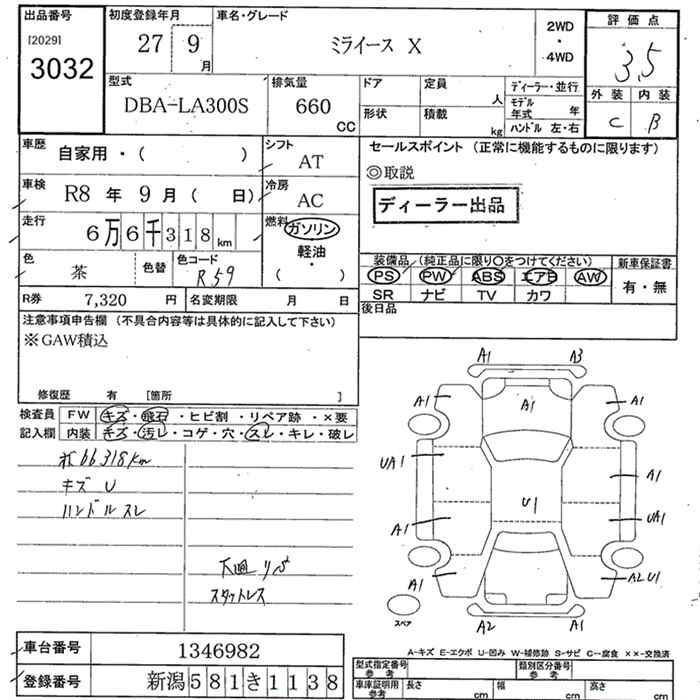 出品番号
[2029]
3032
初度登録年月
27 9
月
車名・グレード
ミライース X
2WD
・
4WD
評価点
3.5
外装 内装
C B
型式
DBA-LA300S
排気量
660
CC
ドア
形状
定員
人
積載
kg
ディーラー・並行
モデル
年式 年
ハンドル 左・右
車歴
自家用・( )
シフト
AT
車検
R8 年 9 月 ( 日)
冷房
AC
走行
6万6千318 km
燃料
ガソリン
軽油
( ・ )
色
茶
色替
色コード
R59
R券 7,320 円
名変期限 月 日
セールスポイント (正常に機能するものに限ります)
◎取説
ディーラー出品
装備品 (純正品に限り○をつけてください)
PS PW ABS エアB AW
SR ナビ TV カワ
新車保証書
有・無
後日品
注意事項申告欄 (不具合内容等は具体的に記入して下さい)
※GAW積込
修復歴 有 [箇所 ]
検査員
記入欄
FW キズ・飛石・ヒビ割・リペア跡・×要
内装 キズ・汚レ・コゲ・穴・スレ・キレ・破レ
66318km
キズ U
ハンドル スレ
下廻 サビ
スタットレス
A1 A3
A1 A1 A1
UA1 A1
U1
A1 UA1
A1 A2 U1
A2 A1
スペア
A-キズ E-エクボ U-凹み W-補修跡 S-サビ C-腐食 ××-交換済
車台番号 1346982
登録番号 新潟 581 き 1138
型式指定番号
参考
類別区分番号
参考
車庫証明用
参考
長さ cm
幅 cm
高さ cm